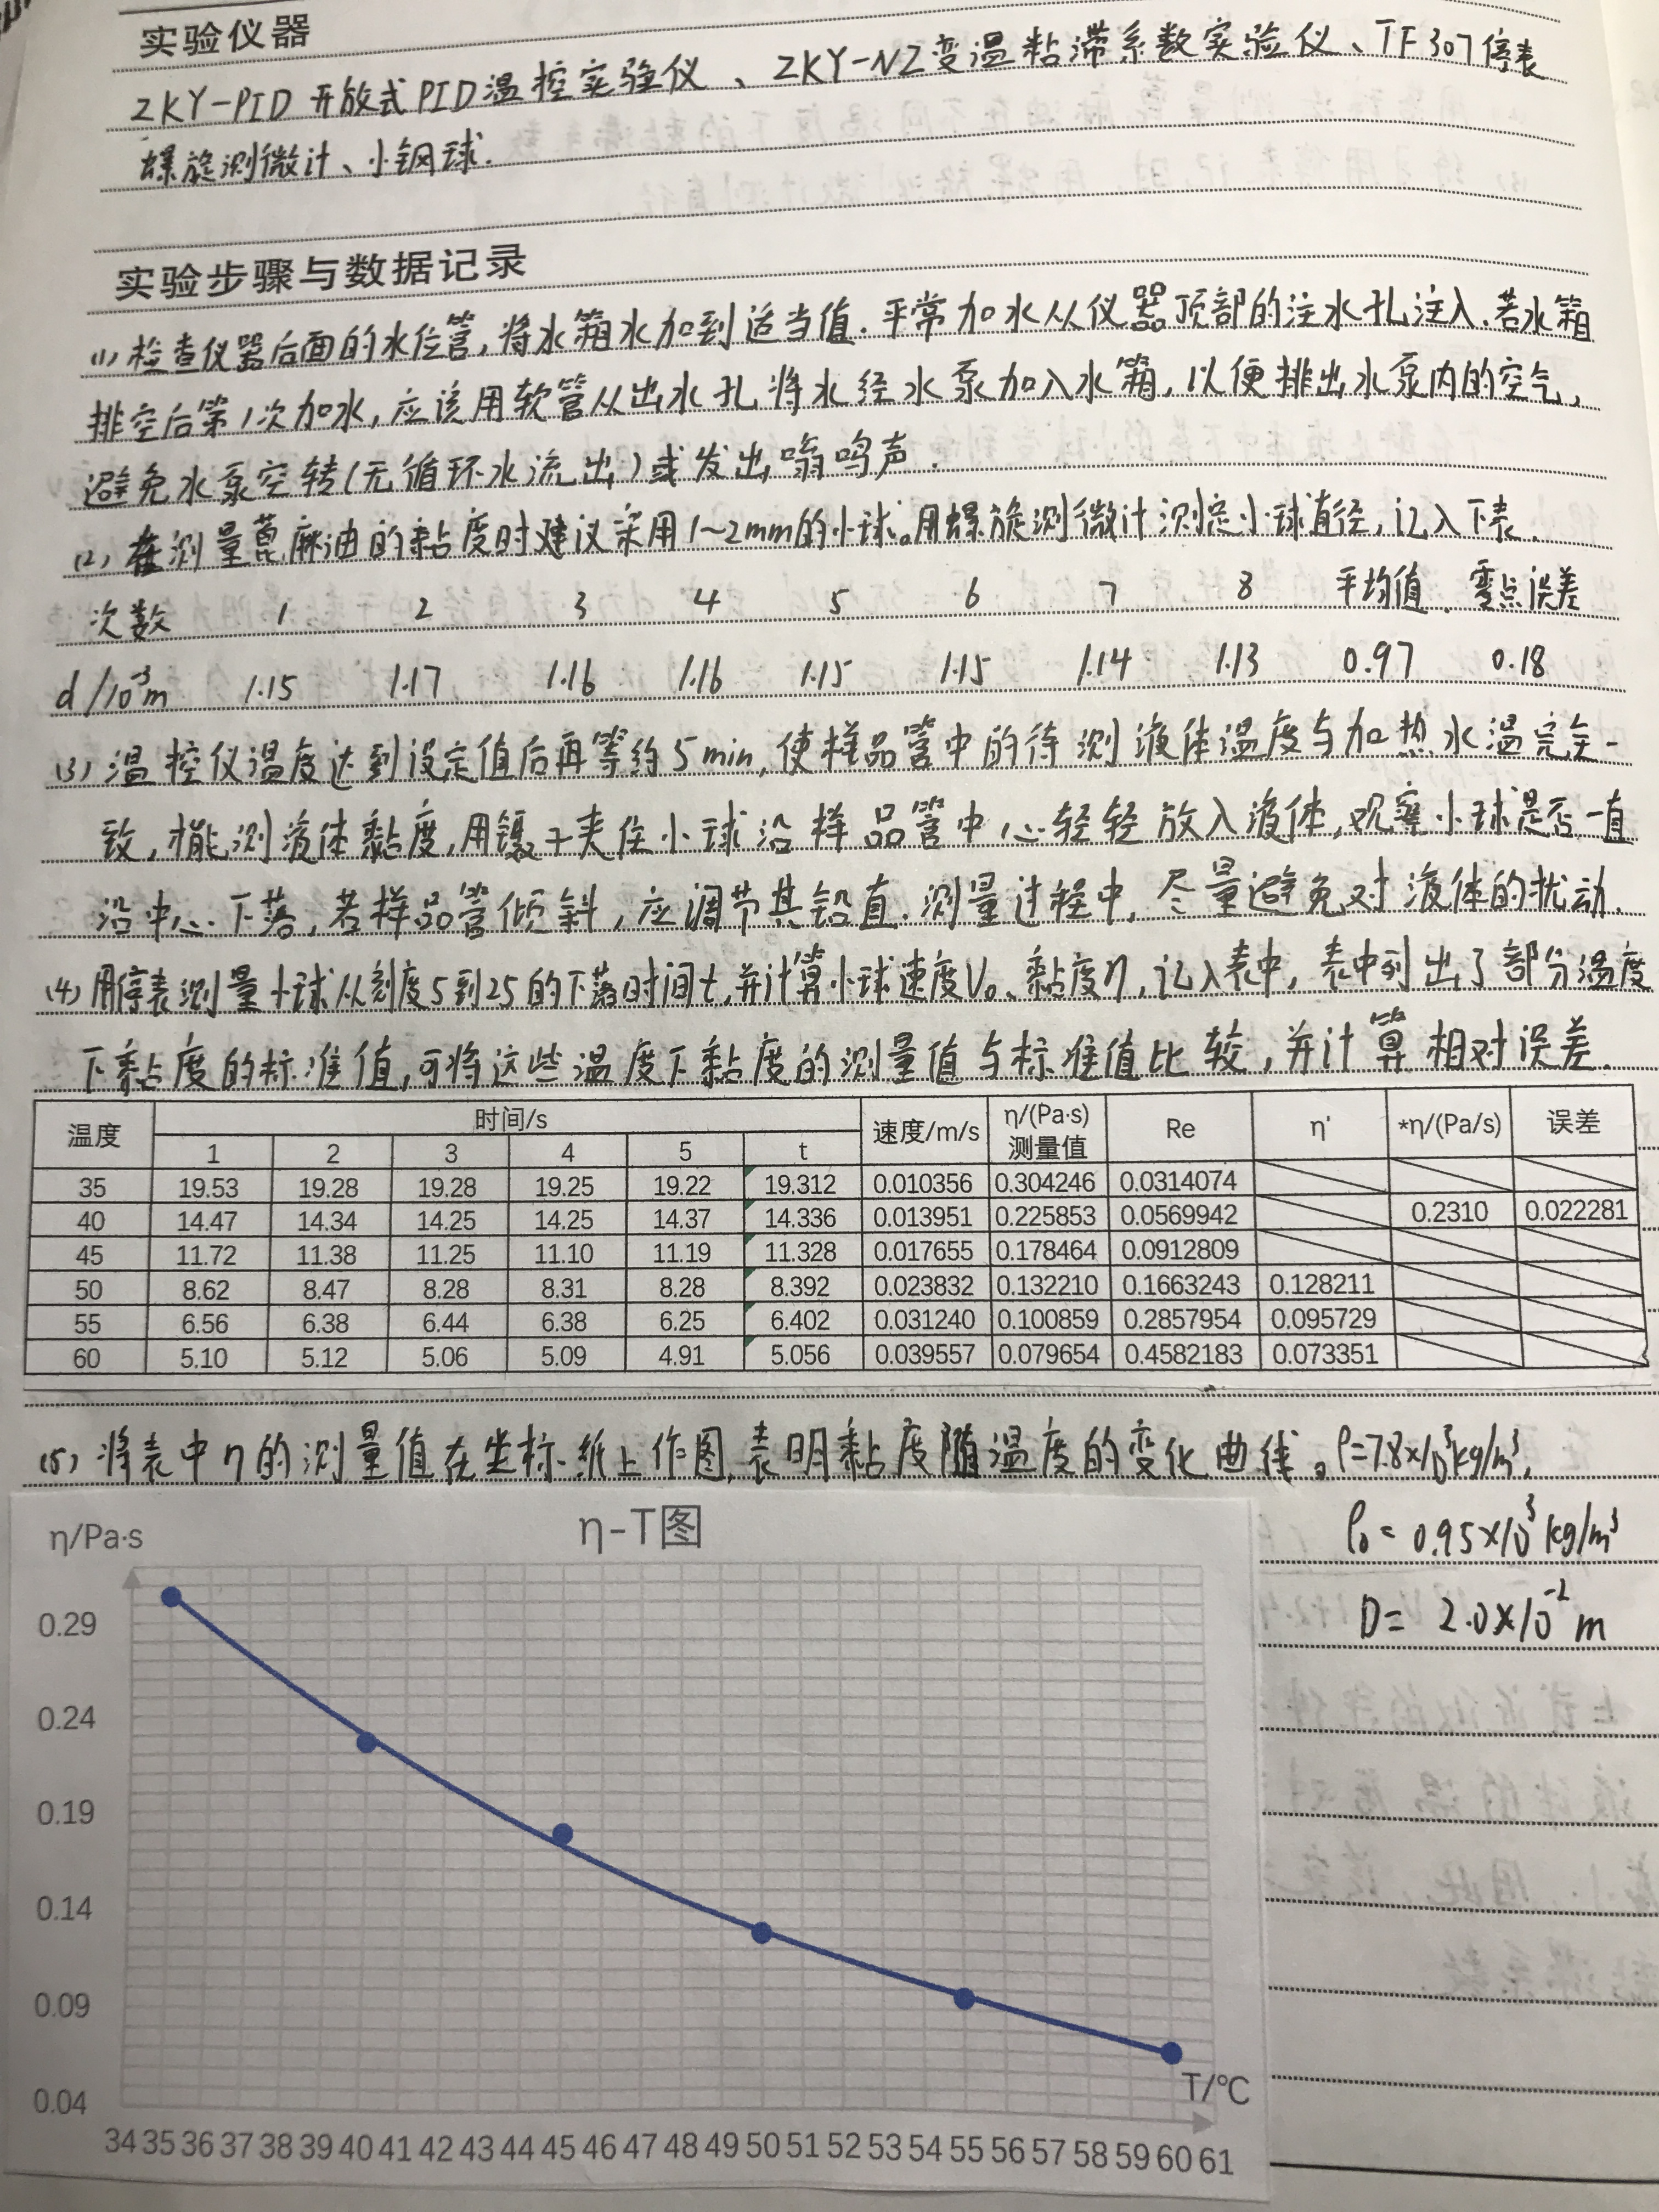 实验仪器
ZKY-PID 开放式PID温控实验仪、ZKY-NZ变温粘滞系数实验仪、TF307停表
螺旋测微计、小钢球.
实验步骤与数据记录
(1) 检查仪器后面的水位管,将水箱水加到适当值.平常加水从仪器顶部的注水孔注入.若水箱
排空后第1次加水,应该用软管从出水孔将水经水泵加入水箱,以便排出水泵内的空气,
避免水泵空转(无循环水流出)或发出嗡鸣声.
(2) 在测量蓖麻油的黏度时建议采用1~2mm的小球。用螺旋测微计测定小球直径,记入下表.
次数 1 2 3 4 5 6 7 8 平均值 零点误差
d/10⁻³m 1.15 1.17 1.16 1.16 1.15 1.15 1.14 1.13 0.97 0.18
(3) 温控仪温度达到设定值后再等约5min,使样品管中的待测液体温度与加热水温完全一
致,才能测液体黏度,用镊子夹住小球沿样品管中心轻轻放入液体,观察小球是否一直
沿中心下落,若样品管倾斜,应调节其铅直.测量过程中,尽量避免对液体的扰动.
(4) 用停表测量小球从刻度5到25的下落时间t,并计算小球速度V₀、黏度η,记入表中,表中列出了部分温度
下黏度的标准值,可将这些温度下黏度的测量值与标准值比较,并计算相对误差.
温度 时间/s 速度/m/s η/(Pa·s) 测量值 Re η' *η/(Pa/s) 误差
1 2 3 4 5 t
35 19.53 19.28 19.28 19.25 19.22 19.312 0.010356 0.304246 0.0314074
40 14.47 14.34 14.25 14.25 14.37 14.336 0.013951 0.225853 0.0569942 0.2310 0.022281
45 11.72 11.38 11.25 11.10 11.19 11.328 0.017655 0.178464 0.0912809
50 8.62 8.47 8.28 8.31 8.28 8.392 0.023832 0.132210 0.1663243 0.128211
55 6.56 6.38 6.44 6.38 6.25 6.402 0.031240 0.100859 0.2857954 0.095729
60 5.10 5.12 5.06 5.09 4.91 5.056 0.039557 0.079654 0.4582183 0.073351
(5) 将表中η的测量值在坐标纸上作图,表明黏度随温度的变化曲线。ρ=7.8×10³kg/m³,
ρ₀=0.95×10³kg/m³
D= 2.0×10⁻²m
η-T图
η/Pa·s
0.29
0.24
0.19
0.14
0.09
0.04
T/℃
34 35 36 37 38 39 40 41 42 43 44 45 46 47 48 49 50 51 52 53 54 55 56 57 58 59 60 61